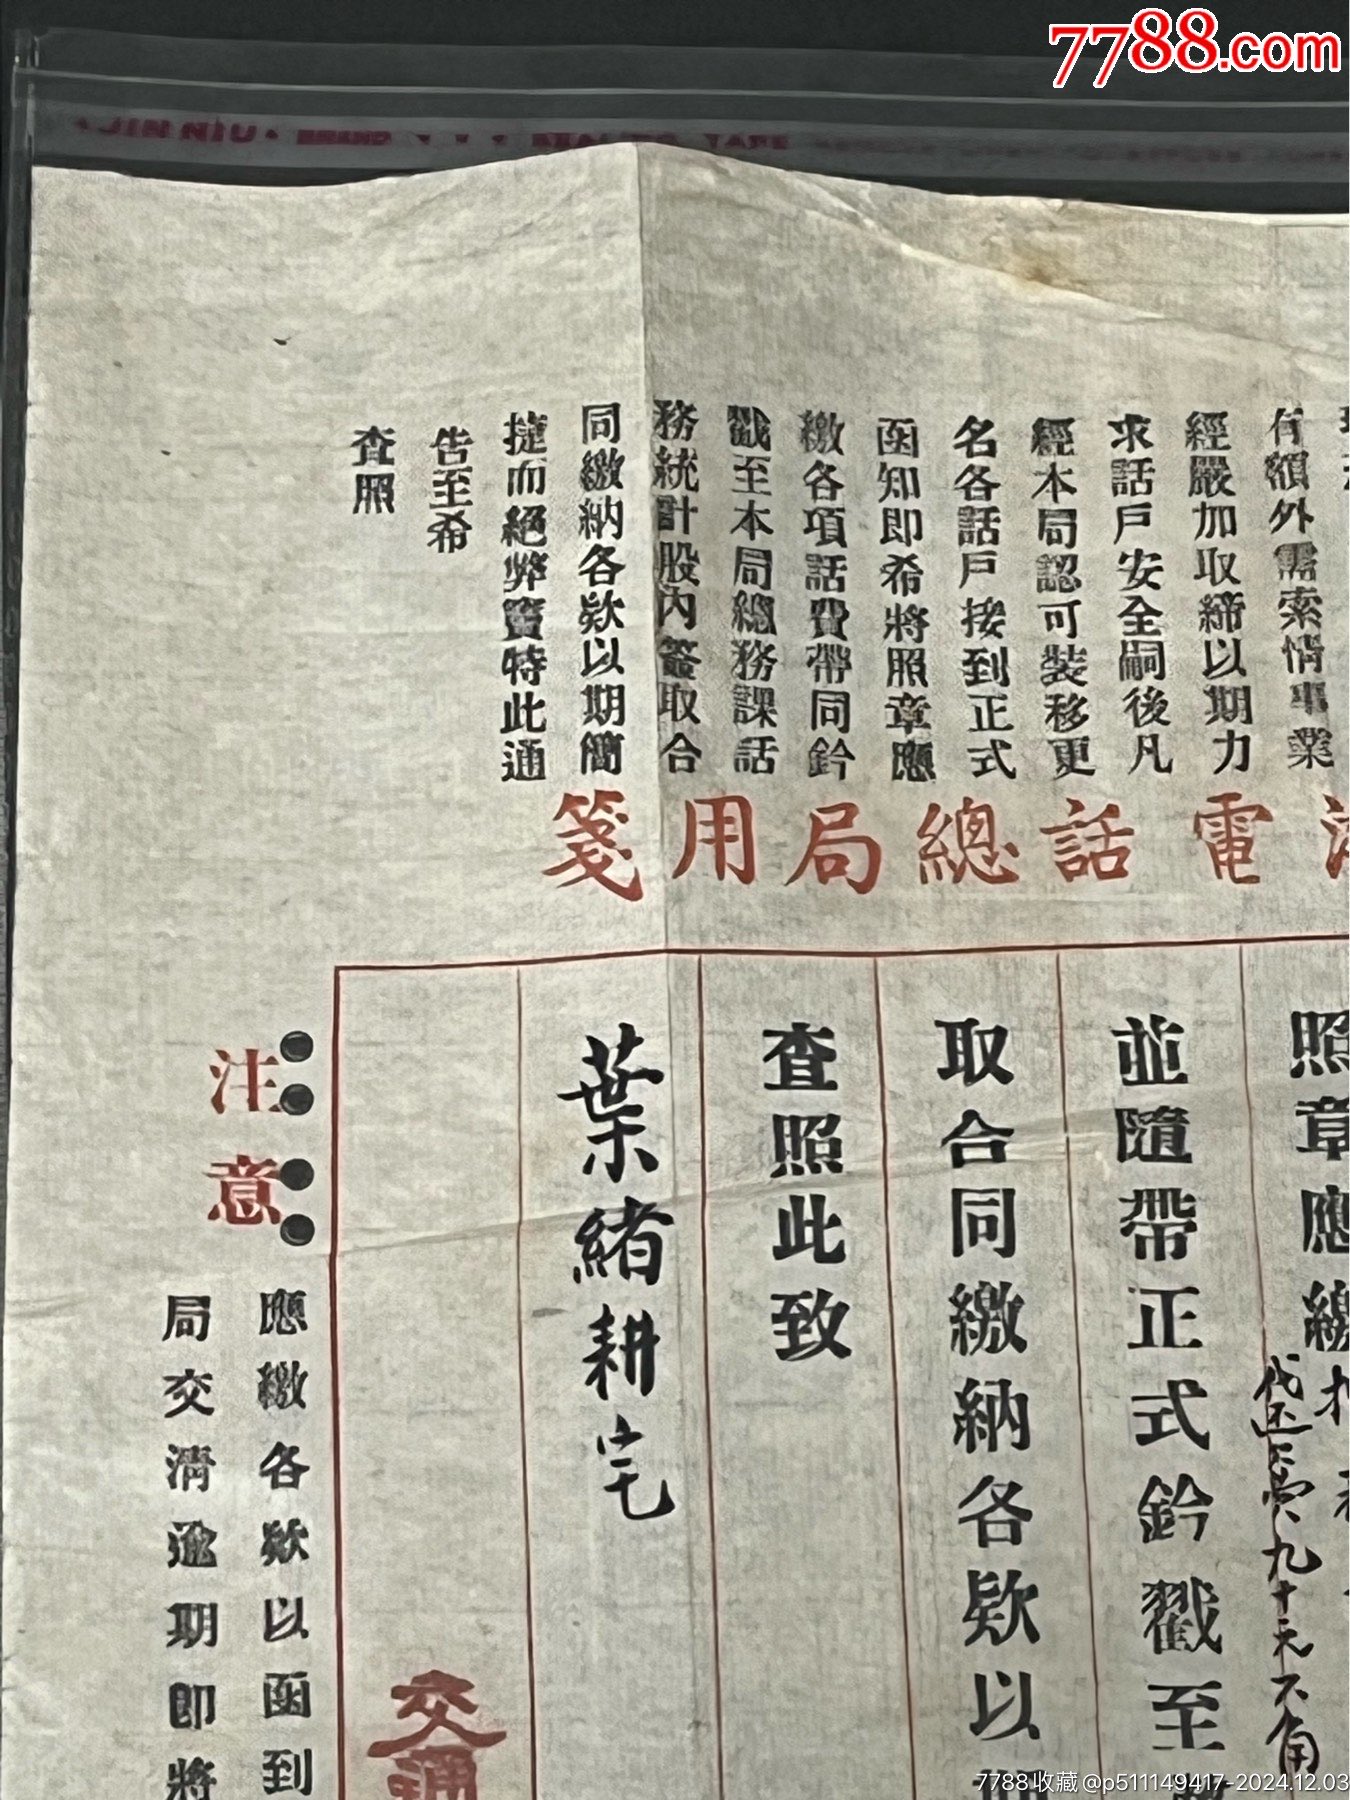 7788.com
JIN NIU
有額外需索情事業
經嚴加取締以期力
求話戶安全嗣後凡
經本局認可裝移更
名各話戶接到正式
函知即希將照章應
繳各項話費帶同鈐
戳至本局總務課話
務統計股內簽取合
同繳納各欵以期簡
捷而絕弊竇特此通
告至希
查照
電話總局用箋
照章應繳
代還云
九十元六角
並隨帶正式鈐戳至
取合同繳納各欵以
查照此致
葉緒耕宅
交通
注意
應繳各欵以函到
局交清逾期即將
7788收藏@p511149417-2024.12.03